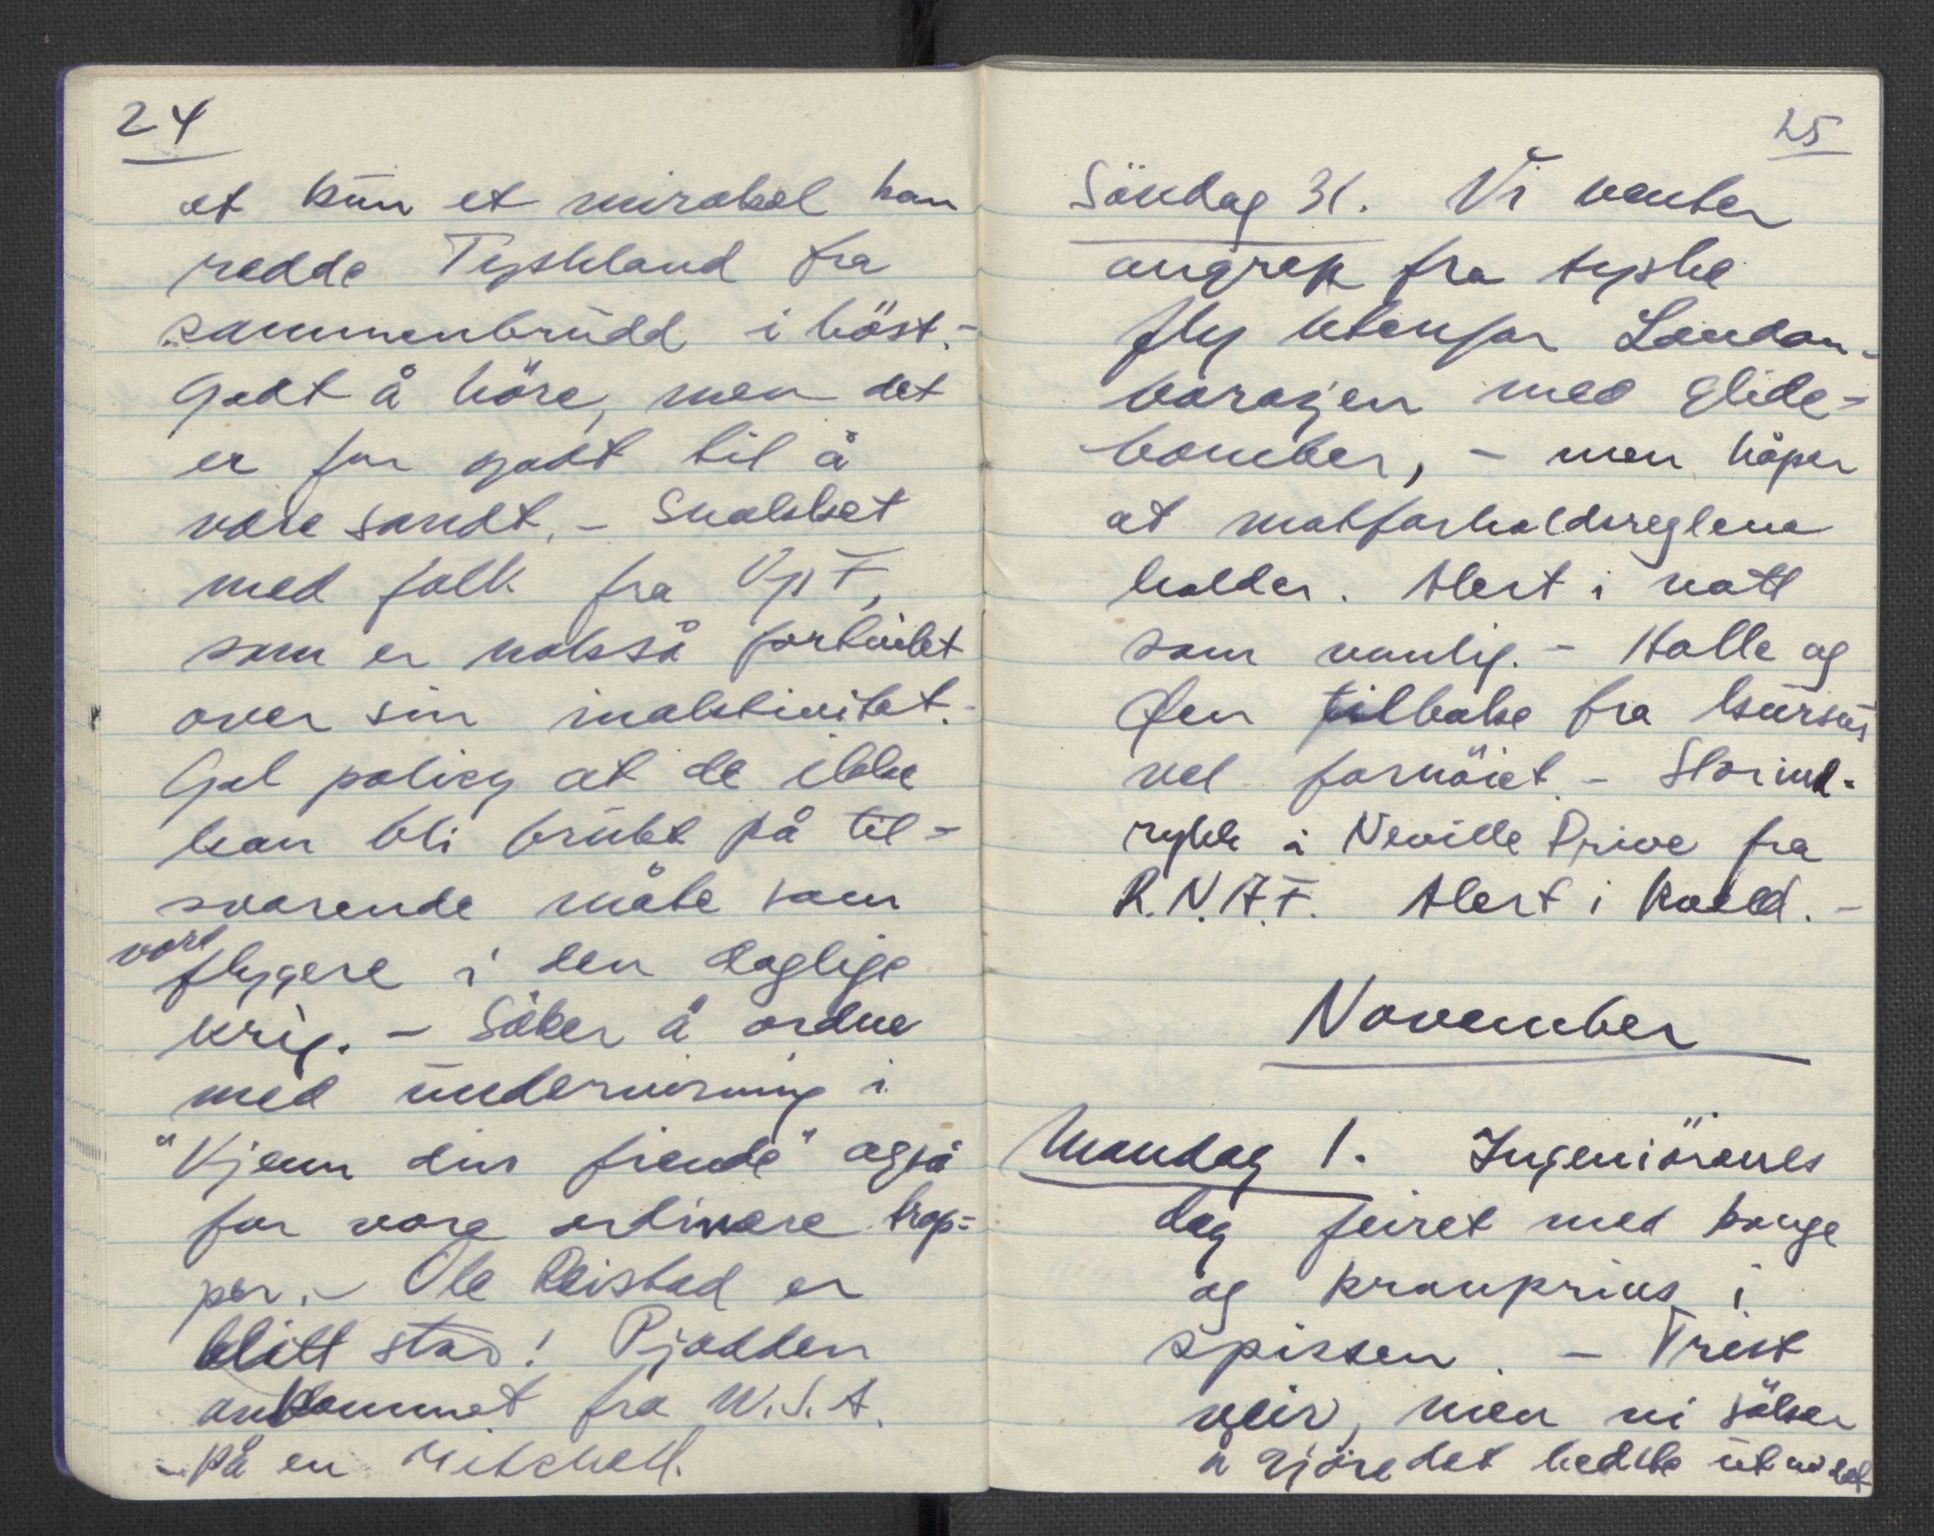 24
at kun et mirakel kan
redde Tyskland fra
sammenbrudd i höst. -
Godt å höre, men det
er for godt til å
være sandt. - Snakket
med folk fra
som er nokså fortvilet
over sin inaktivitet. -
Gal policy at de ikke
kan bli brukt på til-
svarende måte som
våre
flygere i den daglige
krig. - Söker å ordne
med undervisning i
"Kjenn din fiende" også
for vore ordinære trop-
per. - Ole Reistad er
blitt stor! Pjadden
ankommet fra U.S.A.
på en Mitchell.
25
Söndag 31. Vi venter
angrep fra tyske
fly utenfor London-
baragen med glide-
bomber, - men håper
at motforholdsreglene
holder. Alert i natt
som vanlig. - Halle og
Øen tilbake fra kursus
vel fornöiet. - Storind-
rykk i Neville Drive fra
R.N.A.F. Alert i kveld. -
November
Mandag 1. Ingeniörenes
dag feiret med konge
og kronprins i
spissen. - Trist
veir, men vi söker
å gjöre det bedste ut av det